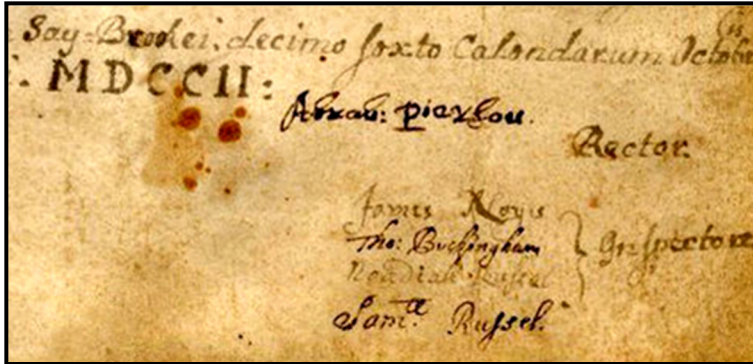 Say-Brookei: decimo sexto Calendarum Octobr
MDCCII:
Abrah: Pierson.
Rector.
James Noyis
Tho: Buckingham
Inspectore
Noadiah Russel
Samll. Russel.